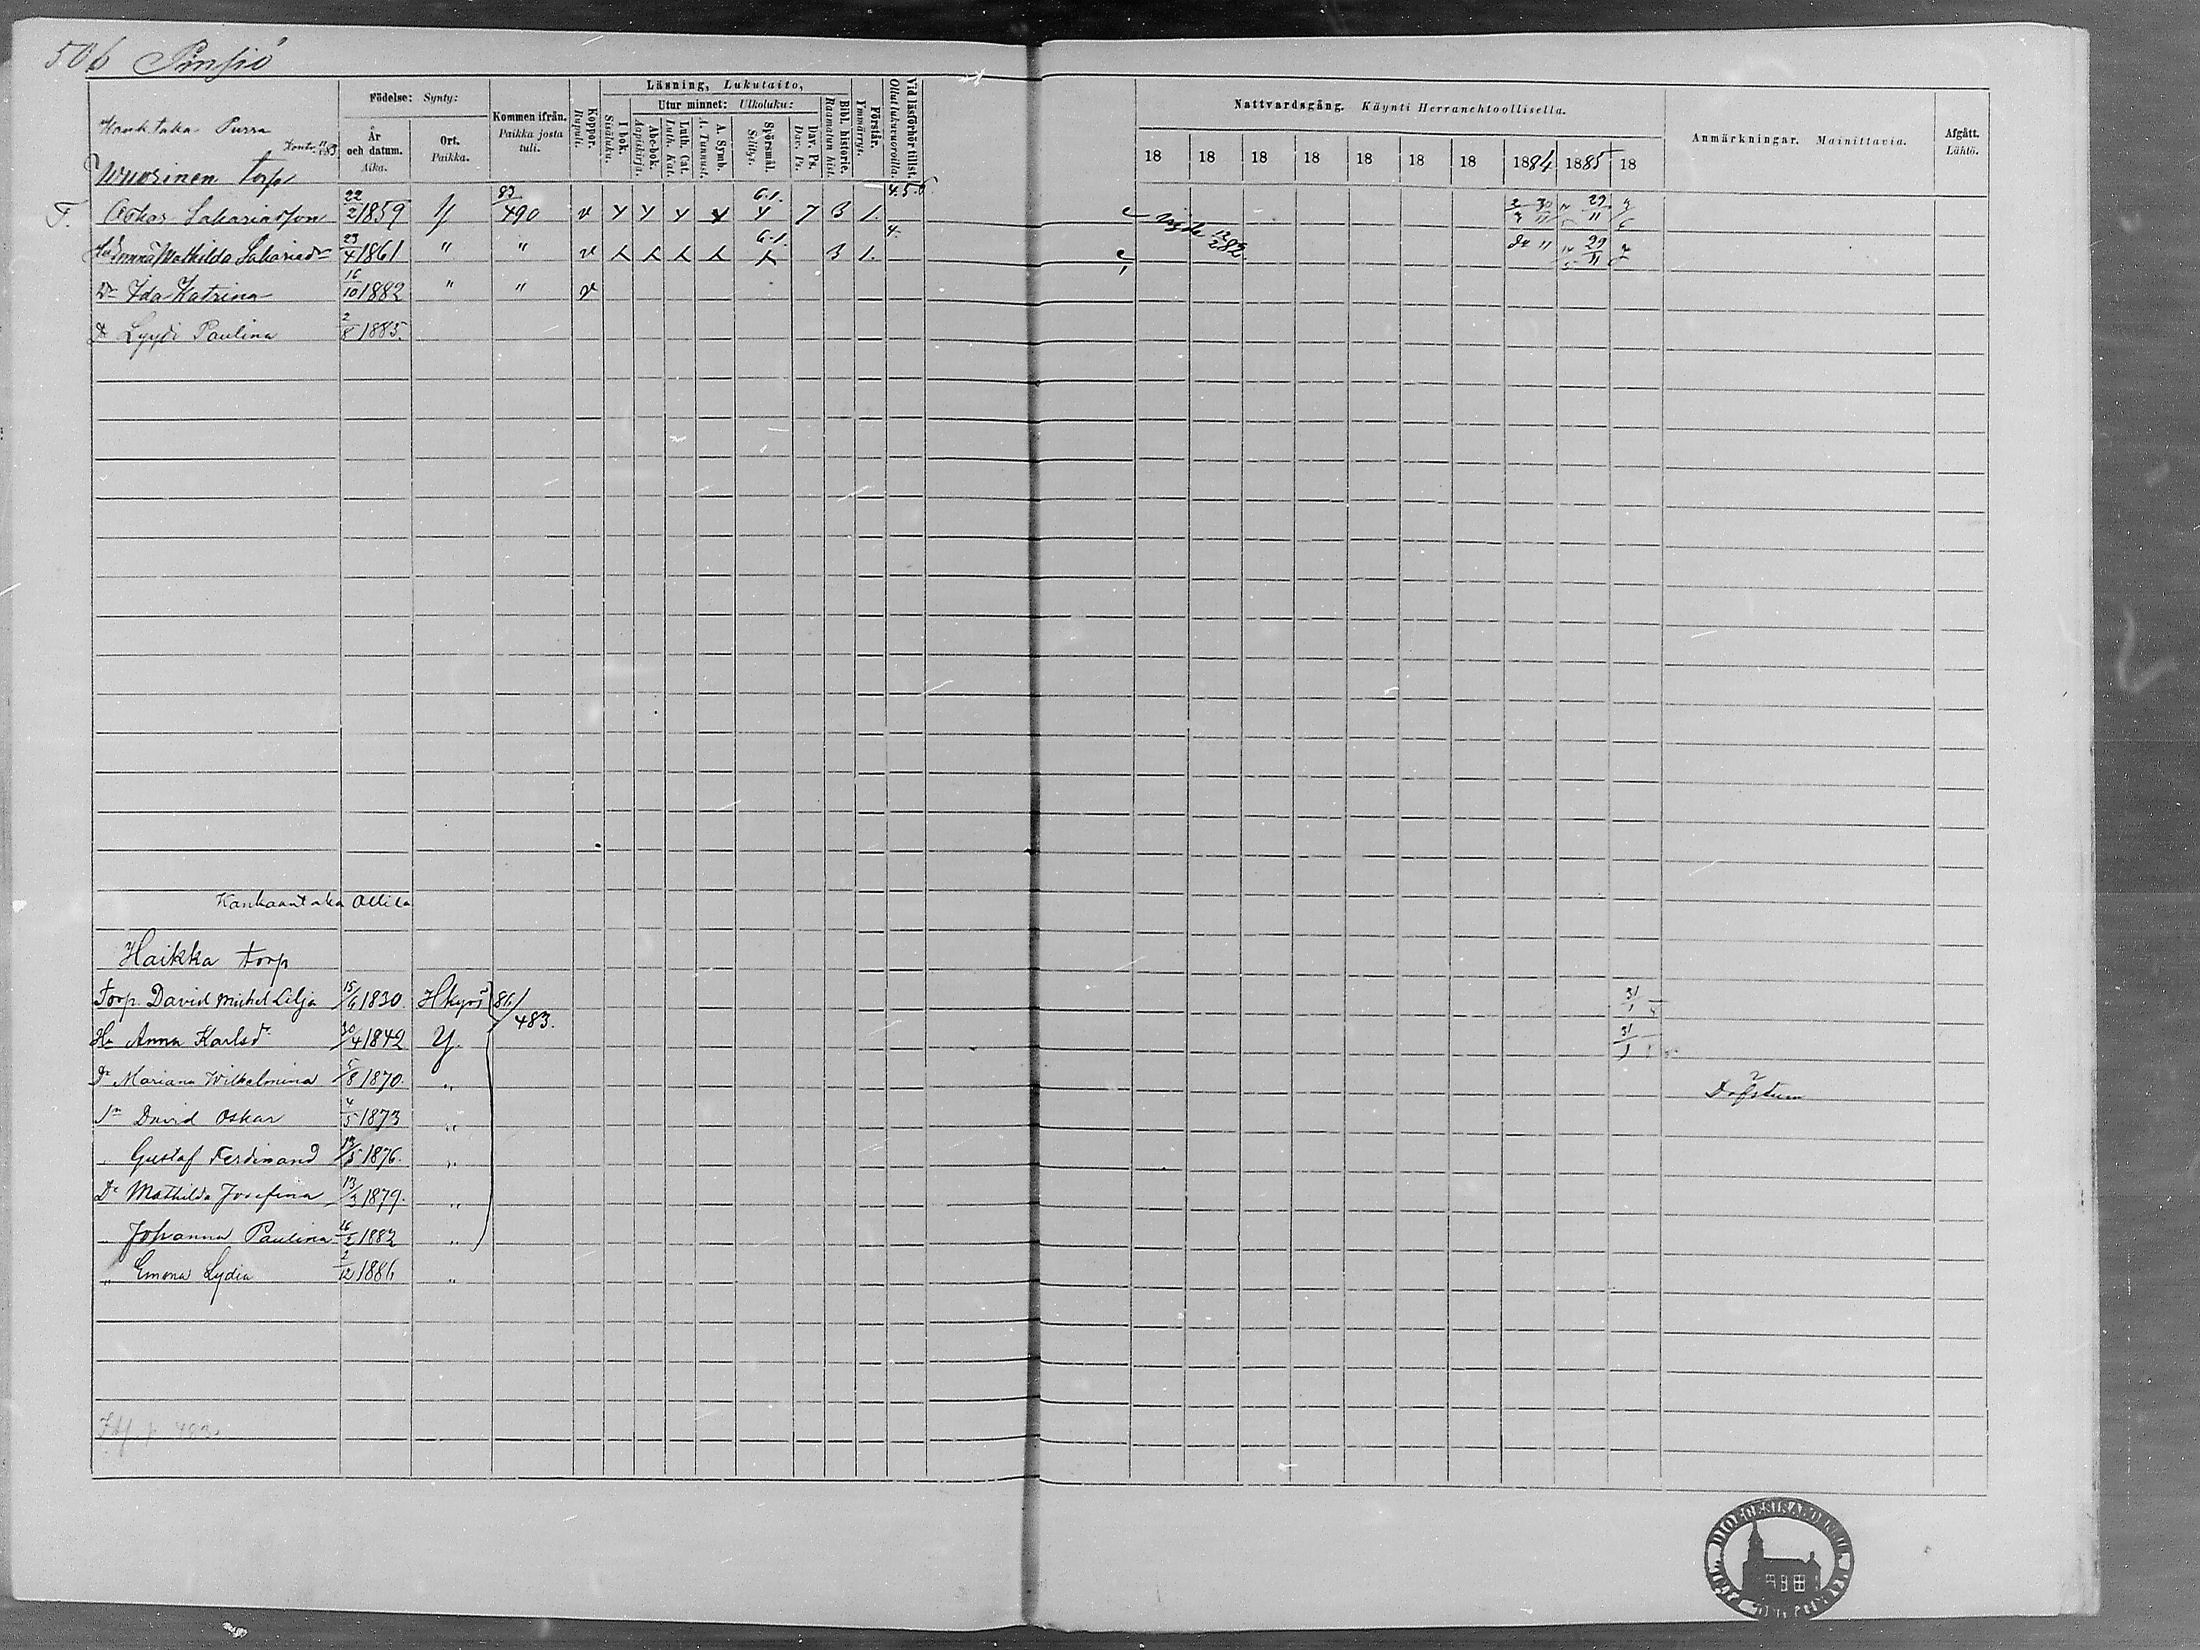 506 Pinsiö
Födelse: Synty:
År och datum. Aika.
Ort. Paikka.
Kommen ifrån. Paikka josta tuli.
Koppor. Rupuli.
Läsning, Lukutaito,
I bok. Sisäluku.
Utur minnet: Ulkoluku:
Abc-bok. Aapiskirja.
Luth. Cat. Luth. Kat.
A. Symb. A. Tunnust.
Spörsmål. Selitys.
Dav. Ps. Dav. Ps.
Bibl. historie. Raamatun hist.
Förstår. Ymmärrys.
Vid läsförhör tillst. Ollut lukuvuoroilla.
Nattvardsgång. Käynti Herranehtoollisella.
18 18 18 18 18 18 18 1884 1885 18
Anmärkningar. Mainittavia.
Afgått. Lähtö.
Kank.taka Purra
Wuorinen torp
T. Oskar Sakariasson 22/2 1859 Y 83/490 v 6.1. 7 3 1. 4.5.6
Hu Emma Mathilda Sakariadr 23/4 1861 " " v 6.1. 3 1. 4.
Dr Ida Katrina 16/10 1882 " " v
Dr Lyydi Paulina 2/8 1885.
Kankaantaka Ollila
Haikka torp
Torp. David Michel Lilja 15/6 1830. Hkyrö 86/483. 31/1
Hu Anna Karlsdr 30/4 1842 Y. 31/1
Dr Mariana Wilhelmina 5/8 1870. " Döfstum
Sn David Oskar 4/5 1873 "
" Gustaf Ferdinand 13/5 1876. "
Dr Mathilda Josefina 13/3 1879. "
" Johanna Paulina 26/2 1882 "
" Emma Lydia 2/12 1886 "